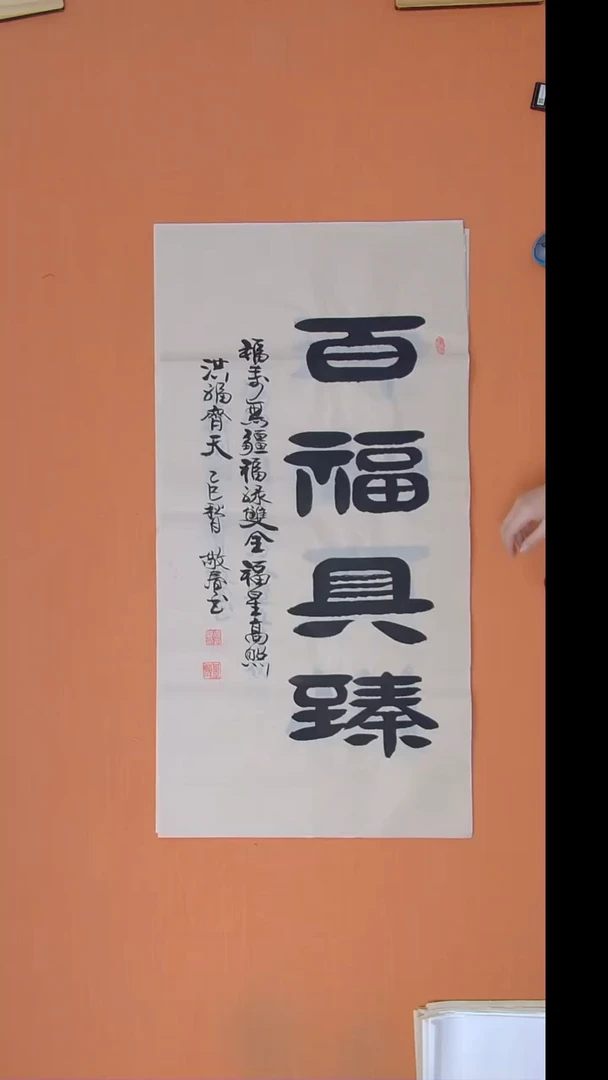 百福具臻
福寿无疆福禄雙全福星高照
洪福齊天 乙巳 敬春书